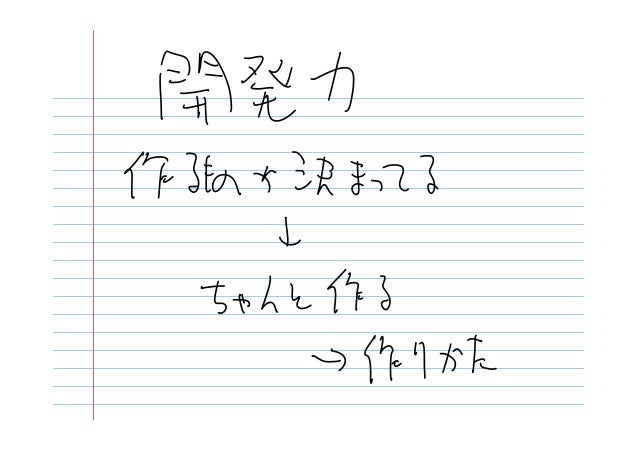 開発力
作るものが決まってる
↓
ちゃんと作る
→作りかた